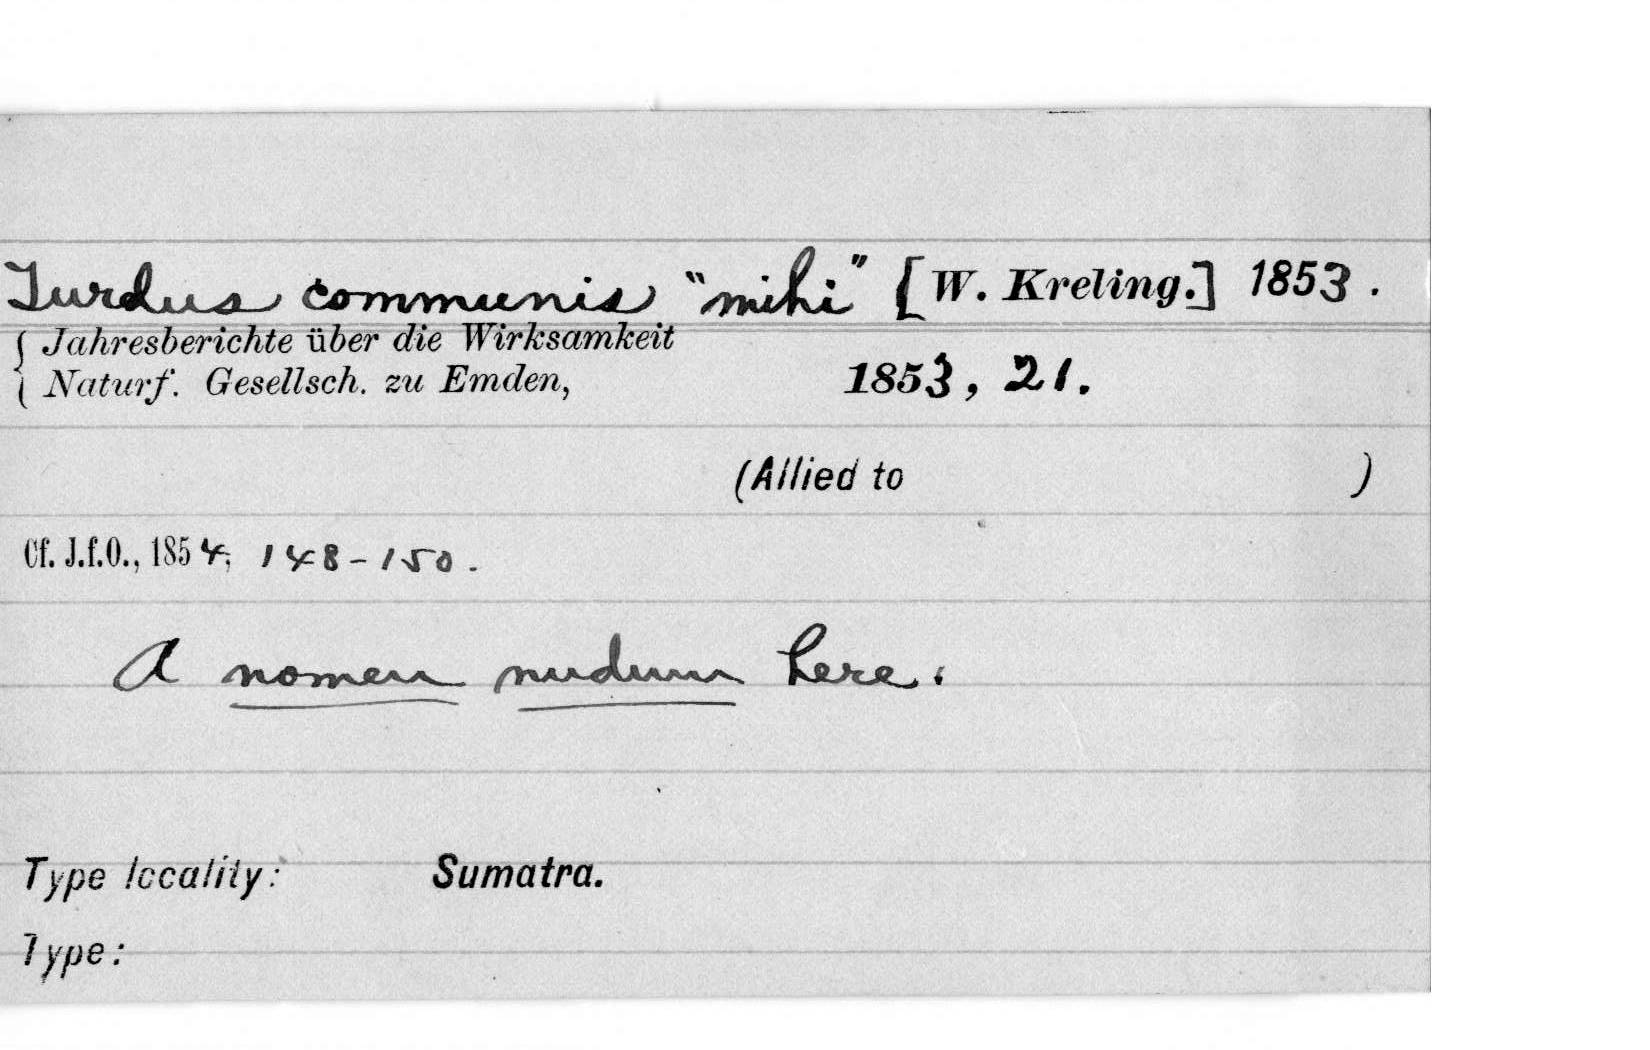 Turdus communis "mihi" [W. Kreling.] 1853.
{ Jahresberichte über die Wirksamkeit
Naturf. Gesellsch. zu Emden, 1853, 21.
(Allied to )
Cf. J.f.O., 1854, 148-150.
A nomen nudum here.
Type locality: Sumatra.
Type: